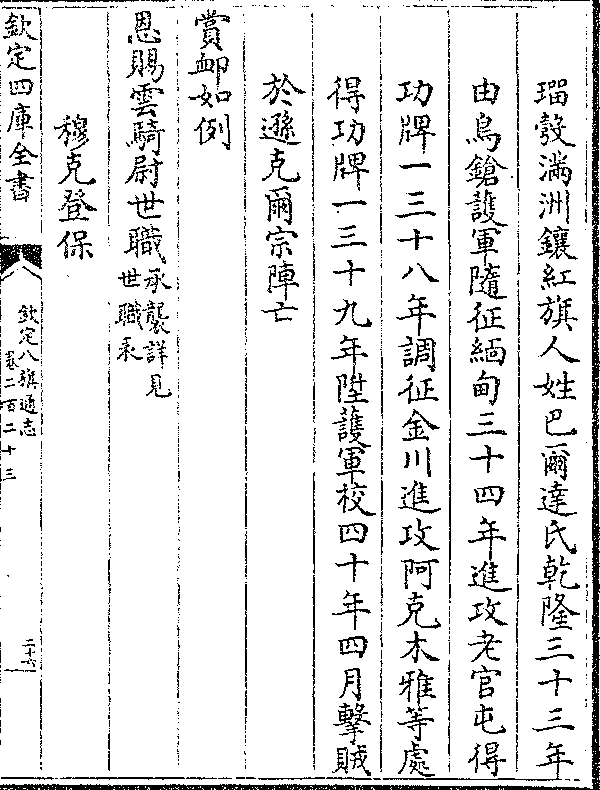 瑠彀滿洲鑲紅旗人姓巴爾達氏乾隆三十三年
由鳥鎗護軍隨征緬甸三十四年進攻老官屯得
功牌一三十八年調征金川進攻阿克木雅等處
得功牌一三十九年陞護軍校四十年四月擊賊
於遜克爾宗陣亡
賞䘏如例
恩賜雲騎尉世職承襲詳見
世職表
穆克登保
欽定四庫全書
欽定八旗通志
卷二百二十三
二十六